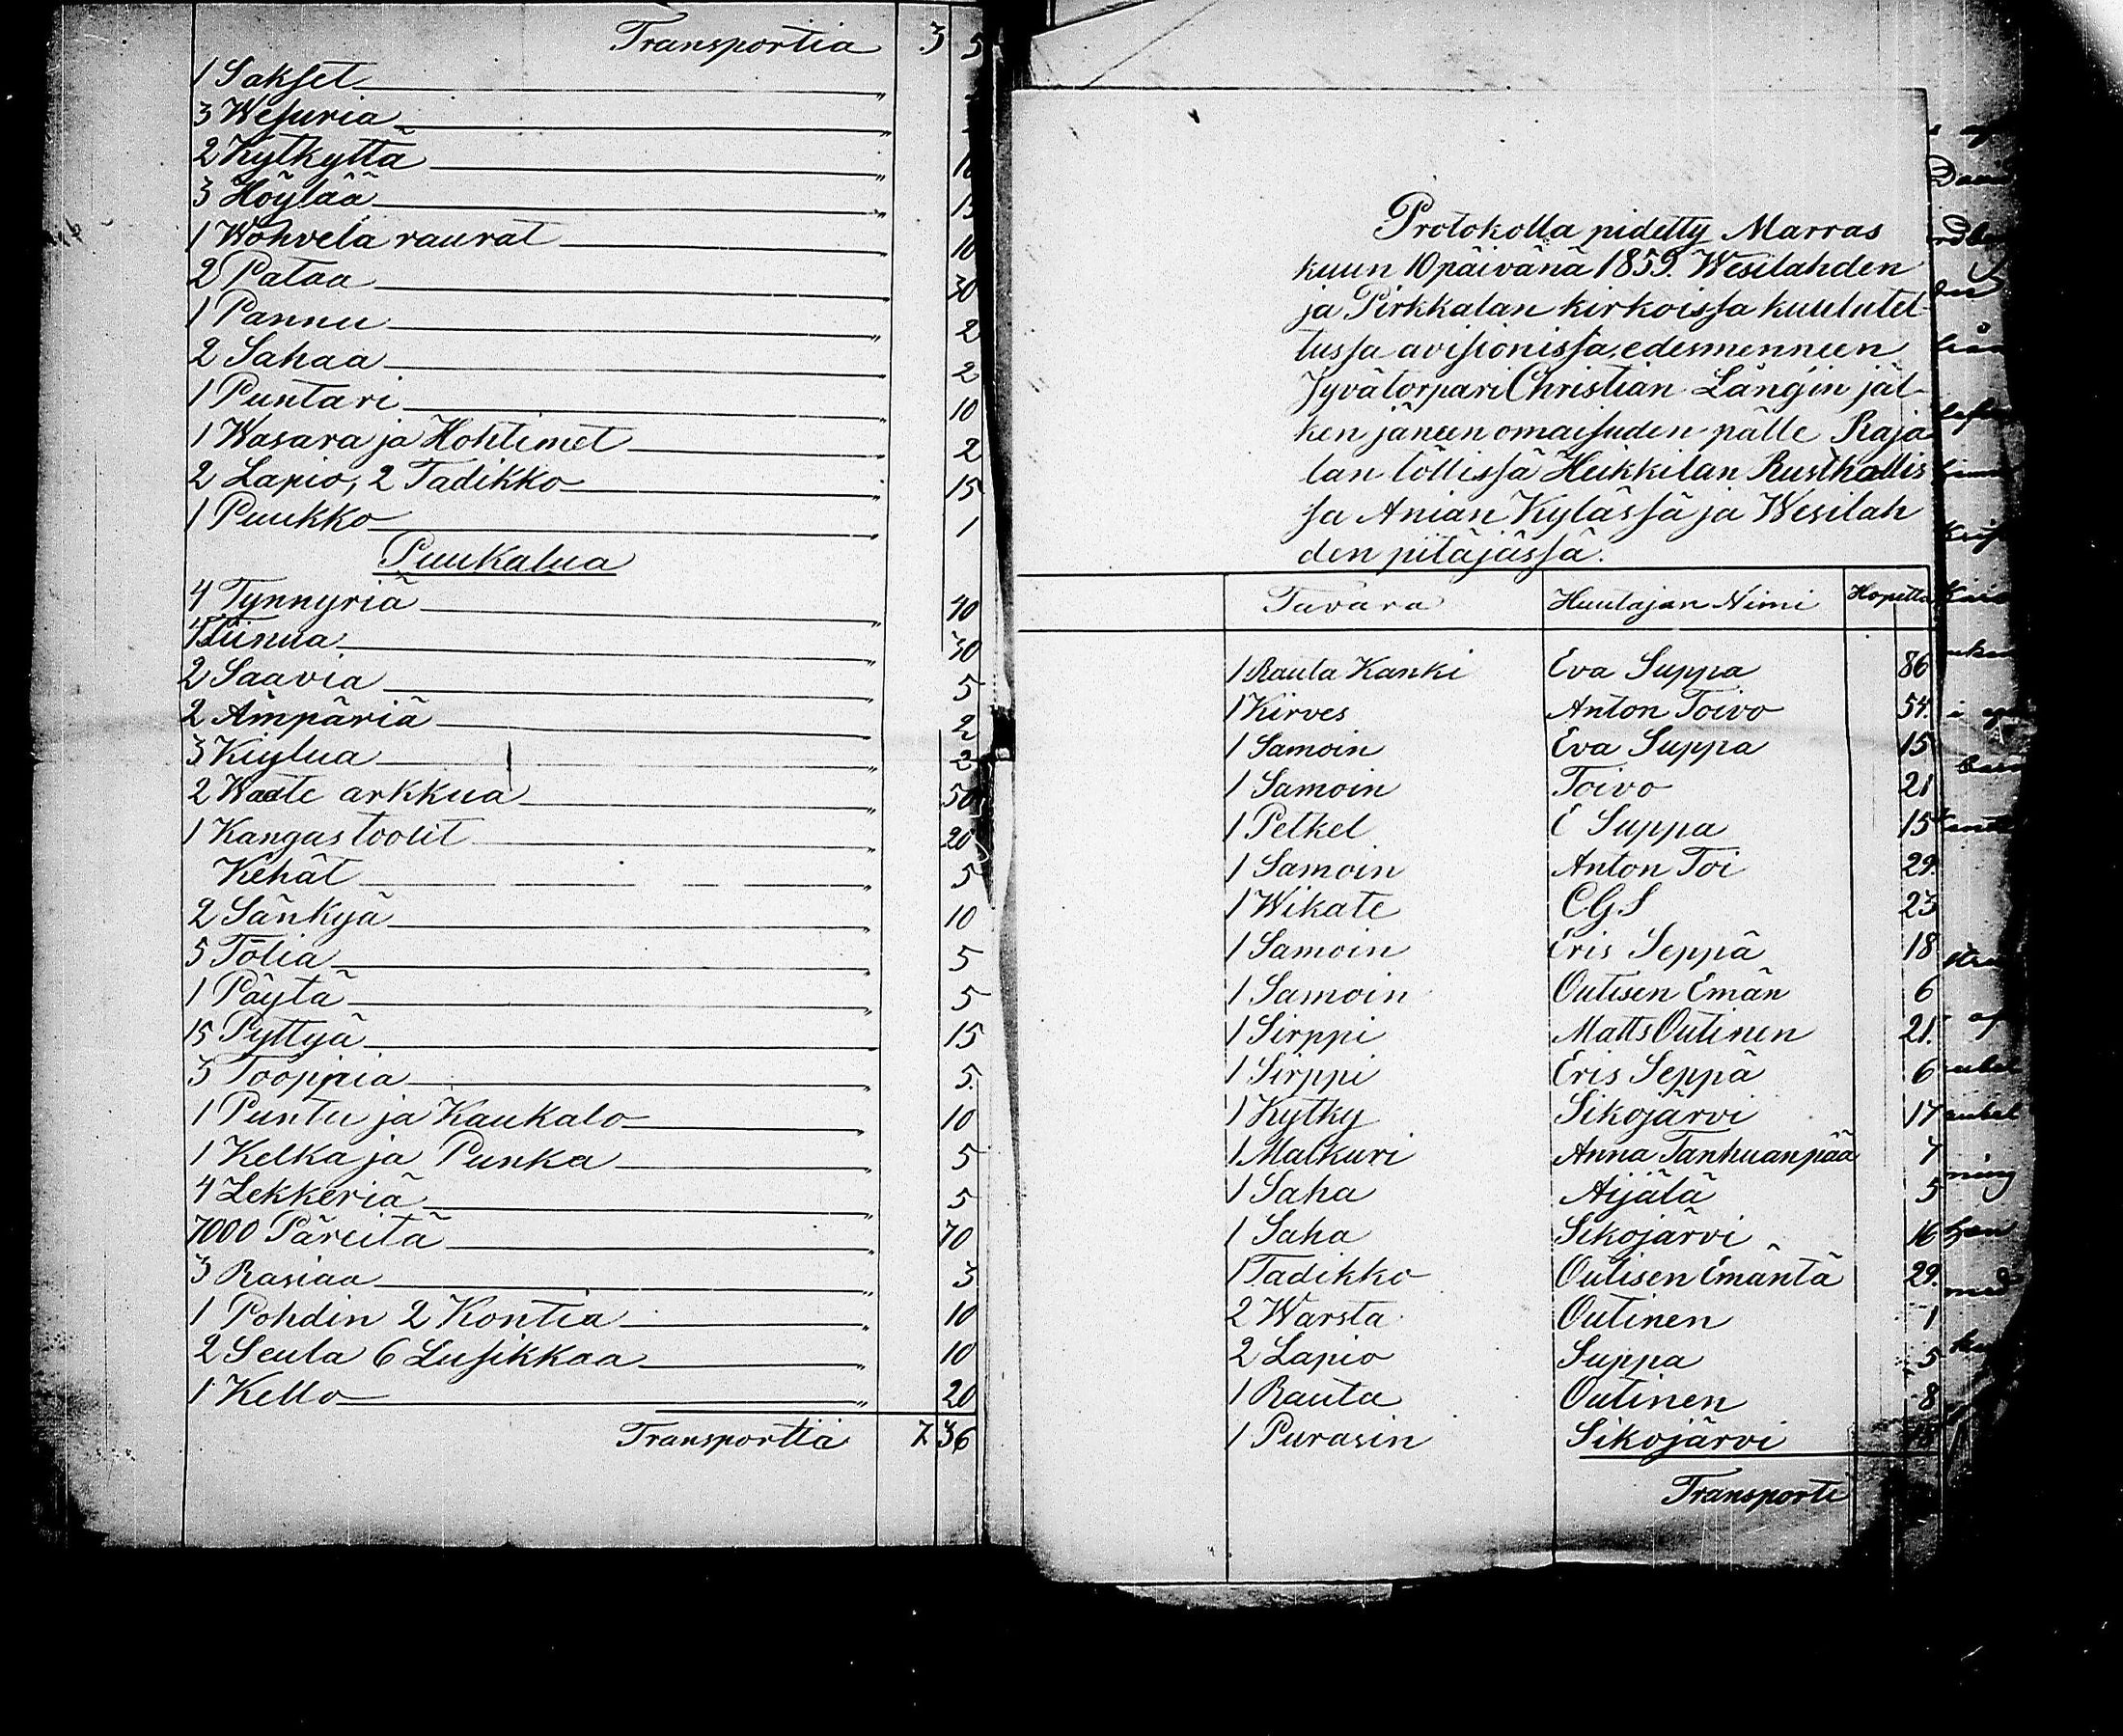 Transportia 3 5
1 Sakset
3 Wesuria
2 Kytkyttä
3 Höylää
1 Wohvela raurat 10
2 Pataa 30
1 Pannu 2
2 Sahaa 2
1 Puntari 10
1 Wasara ja Hohtimet 2
2 Lapio, 2 Tadikko 15
1 Puukko 1
Puukalua
4 Tynnyriä 40
Tiinua 30
2 Saavia 5
2 Ämpäriä 2
3 Kiylua 2
2 Waate arkkua 50
1 Kangas toolit 20
Kehät 5
2 Sänkyä 10
5 Tölia 5
1 Päytä 5
15 Pyttyä 15
3 Tooppia 5.
1 Puntu ja Kaukalo 10
1 Kelka ja Punka 5
4 Lekkeriä 5
7000 Päreitä 70
3 Rasiaa 3
1 Pohdin 2 Kontia 10
2 Seula 6 Lusikkaa 10
1 Kello 20
Transportia 7 36
Protokolla pidetty Marras
kuun 10 päivänä 1859. Wesilahden
ja Pirkkalan kirkoissa kuulutet-
tussa avisionissa, edesmenneen
Jyvätorpari Christian Långin jäl-
ken jäneen omaisuden pälle Raja
lan töllissä Heikkilan Rusthollis
sa Anian Kylässä ja Wesilah
den pitäjässä.
Tavara Huutajan Nimi Hopetta
1 Rauta Kanki Eva Suppa 86
1 Kirves Anton Toivo 54.
1 Samoin Eva Suppa 15
1 Samoin Toivo 21
1 Petkel E Suppa 15
1 Samoin Anton Toi 29.
1 Wikate C.G.S 23
1 Samoin Eris Seppä 18
1 Samoin Outisen Emän 6
1 Sirppi Matts Outinen 21.
1 Sirppi Eris Seppä 6
1 Kytky Sikojärvi 17
1 Malkuri Anna Tanhuanpää 7
1 Saha Aijälä 5
1 Saha Sikojärvi 16
1 Tadikko Outisen Emäntä 29.
2 Warsta Outinen 1
2 Lapio Suppa 5
1 Rauta Outinen 8
1 Purasin Sikojärvi
Transporti